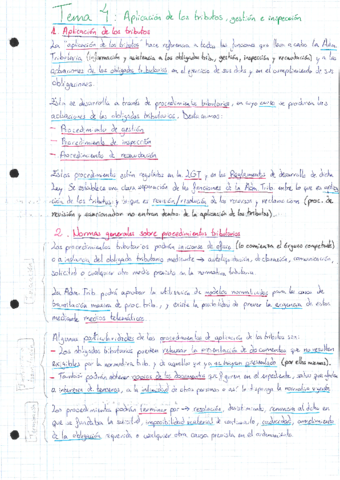 Tema 4: Aplicación de los tributos, gestión e inspección
1. Aplicación de los tributos
La "aplicación de los tributos" hace referencia a todas las funciones que lleva a cabo la Adm.
Tributaria (información y asistencia a los obligados tribs., gestión, inspección y recaudación) y a las
actuaciones de los obligados tributarios en el ejercicio de sus dchos y en el cumplimiento de sus
obligaciones.
Esto se desarrolla a través de procedimientos tributarios, en cuyo curso se producirán las
actuaciones de los obligados tributarios. Destacamos:
- Procedimiento de gestión
- Procedimiento de inspección
- Procedimiento de recaudación
Estos procedimientos están regulados en la LGT y en los Reglamentos de desarrollo de dicha
Ley. Se establece una clara separación de las funciones de la Adm Trib entre lo que es aplica-
ción de los tributos y lo que es revisión/resolución de los recursos y reclamaciones (proc. de
revisión y sancionador no entran dentro de la aplicación de los tributos).
2. Normas generales sobre procedimientos tributarios
Los procedimientos tributarios podrán iniciarse de oficio (lo comienza el órgano competente)
o a instancia del obligado tributario mediante → autoliquidación, declaración, comunicación,
solicitud o cualquier otro medio previsto en la normativa tributaria.
La Adm. Trib. podrá aprobar la utilización de modelos normalizados para los casos de
tramitación masiva de proc. tribs., y existe la posibilidad de prever la exigencia de estos
mediante medios telemáticos.
Algunas particularidades de los procedimientos de aplicación de los tributos son:
- Los obligados tributarios pueden rehusar la presentación de documentos que no resulten
exigibles por la normativa tribut. y de aquellos que ya se hayan presentado (por ellos mismos).
- También podrán obtener copias de los documentos que figuren en el expediente, salvo que afecten
a intereses de terceros, a la intimidad de otras personas o así lo disponga la normativa vigente.
Los procedimientos podrán terminar por → resolución, desistimiento, renuncia al dcho en
que se fundaba la solicitud, imposibilidad material de continuarlo, caducidad, cumplimiento
de la obligación requerida o cualquier otra causa prevista en el ordenamiento.